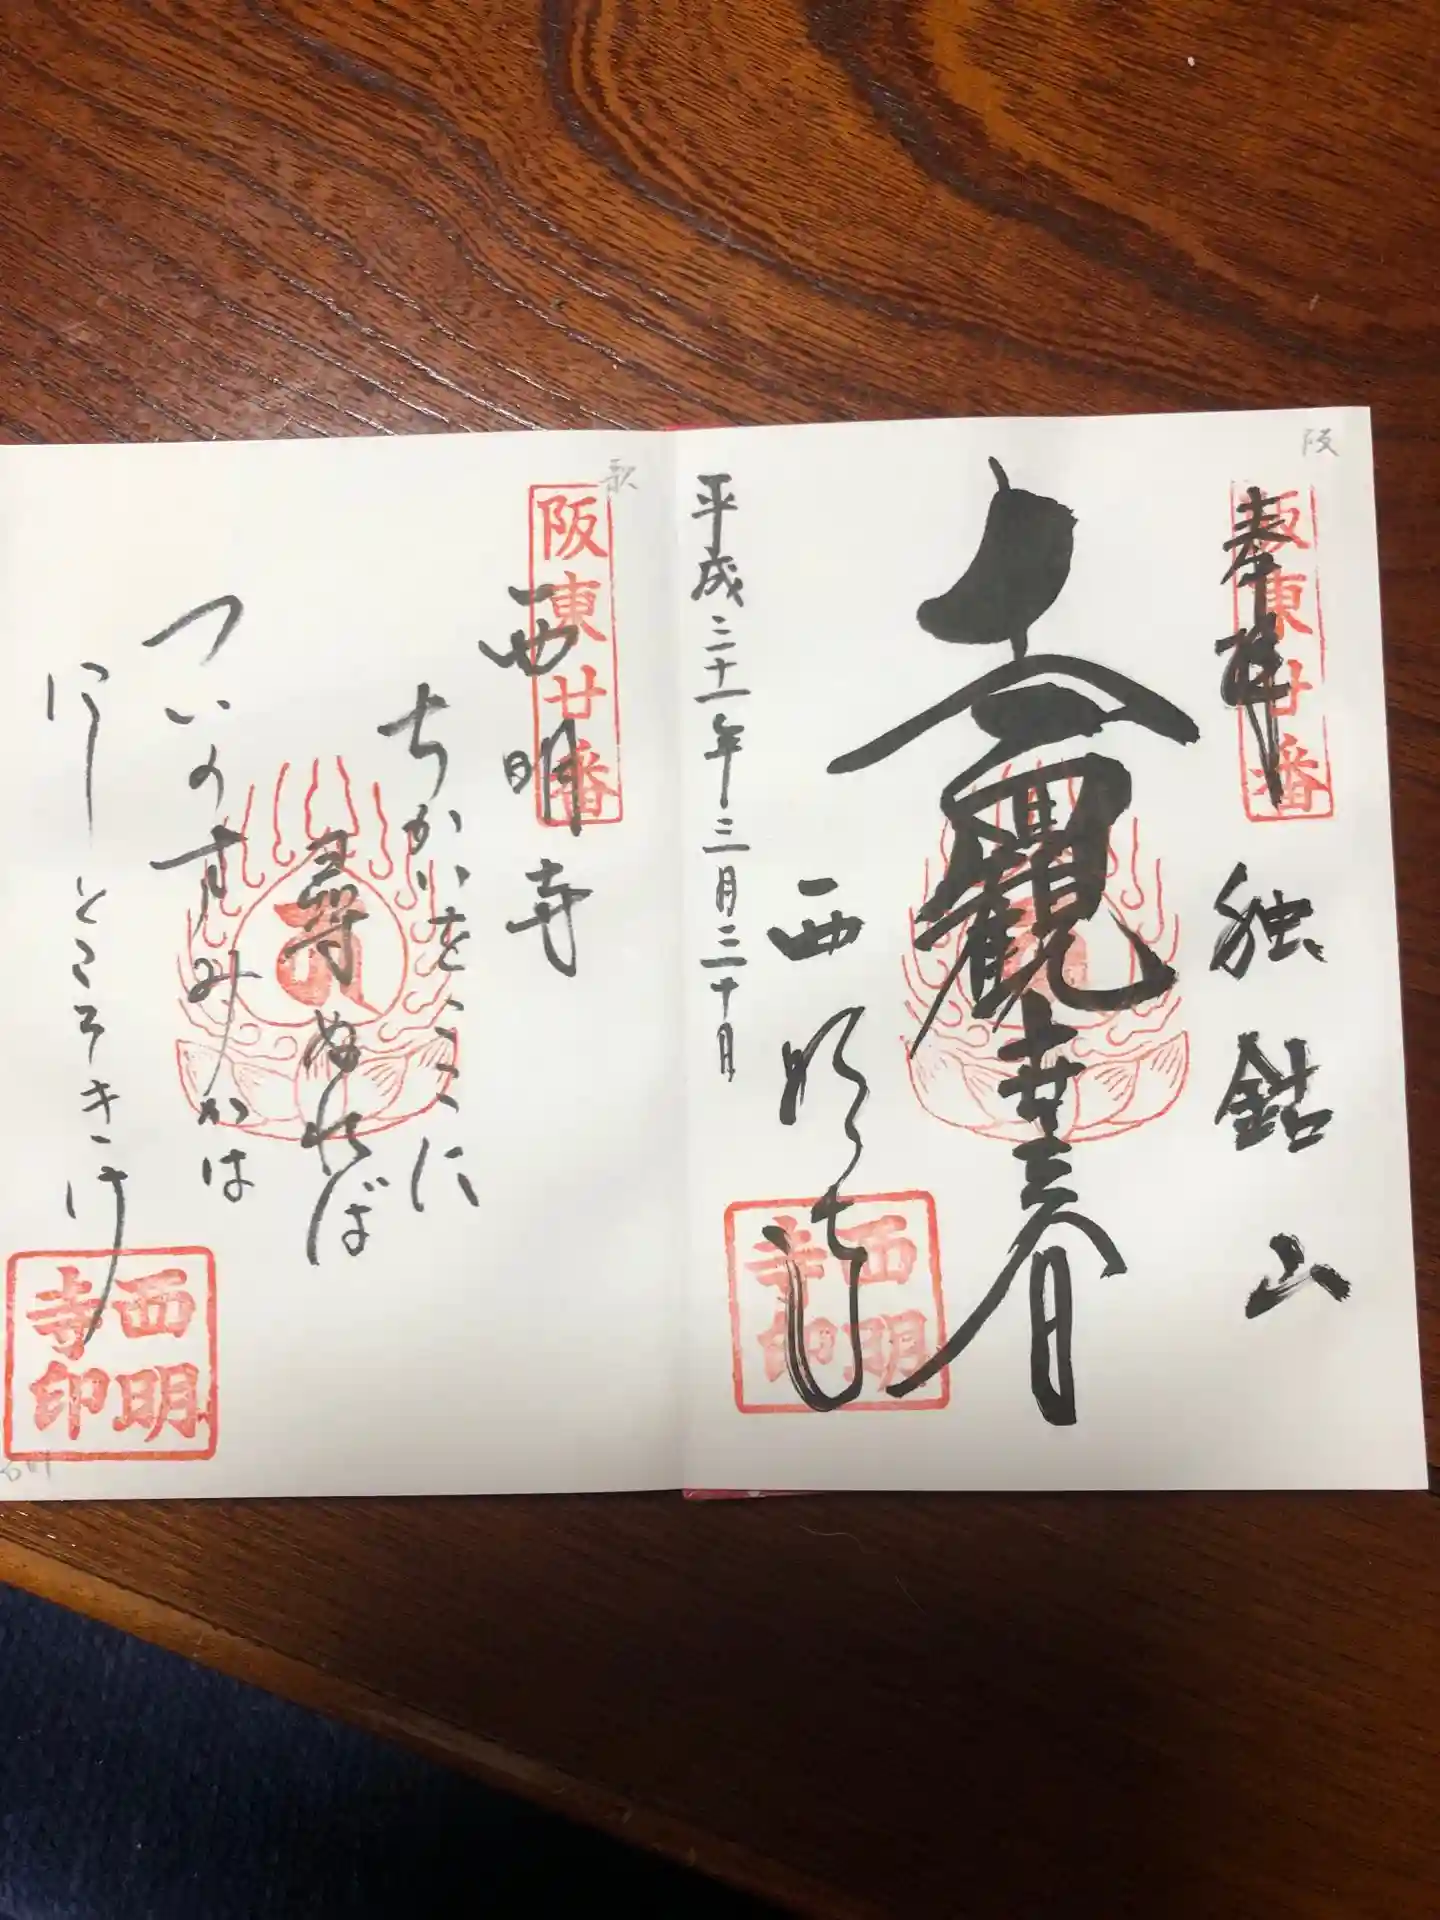 阪
阪東廿番
奉拝
独鈷山
大観音
西明寺
平成三十一年三月三十日
西明寺印
歌
阪東廿番
西明寺
ちかいをこゝに
尋ぬれば
ついのすみかは
にしとこそきけ
西明寺印